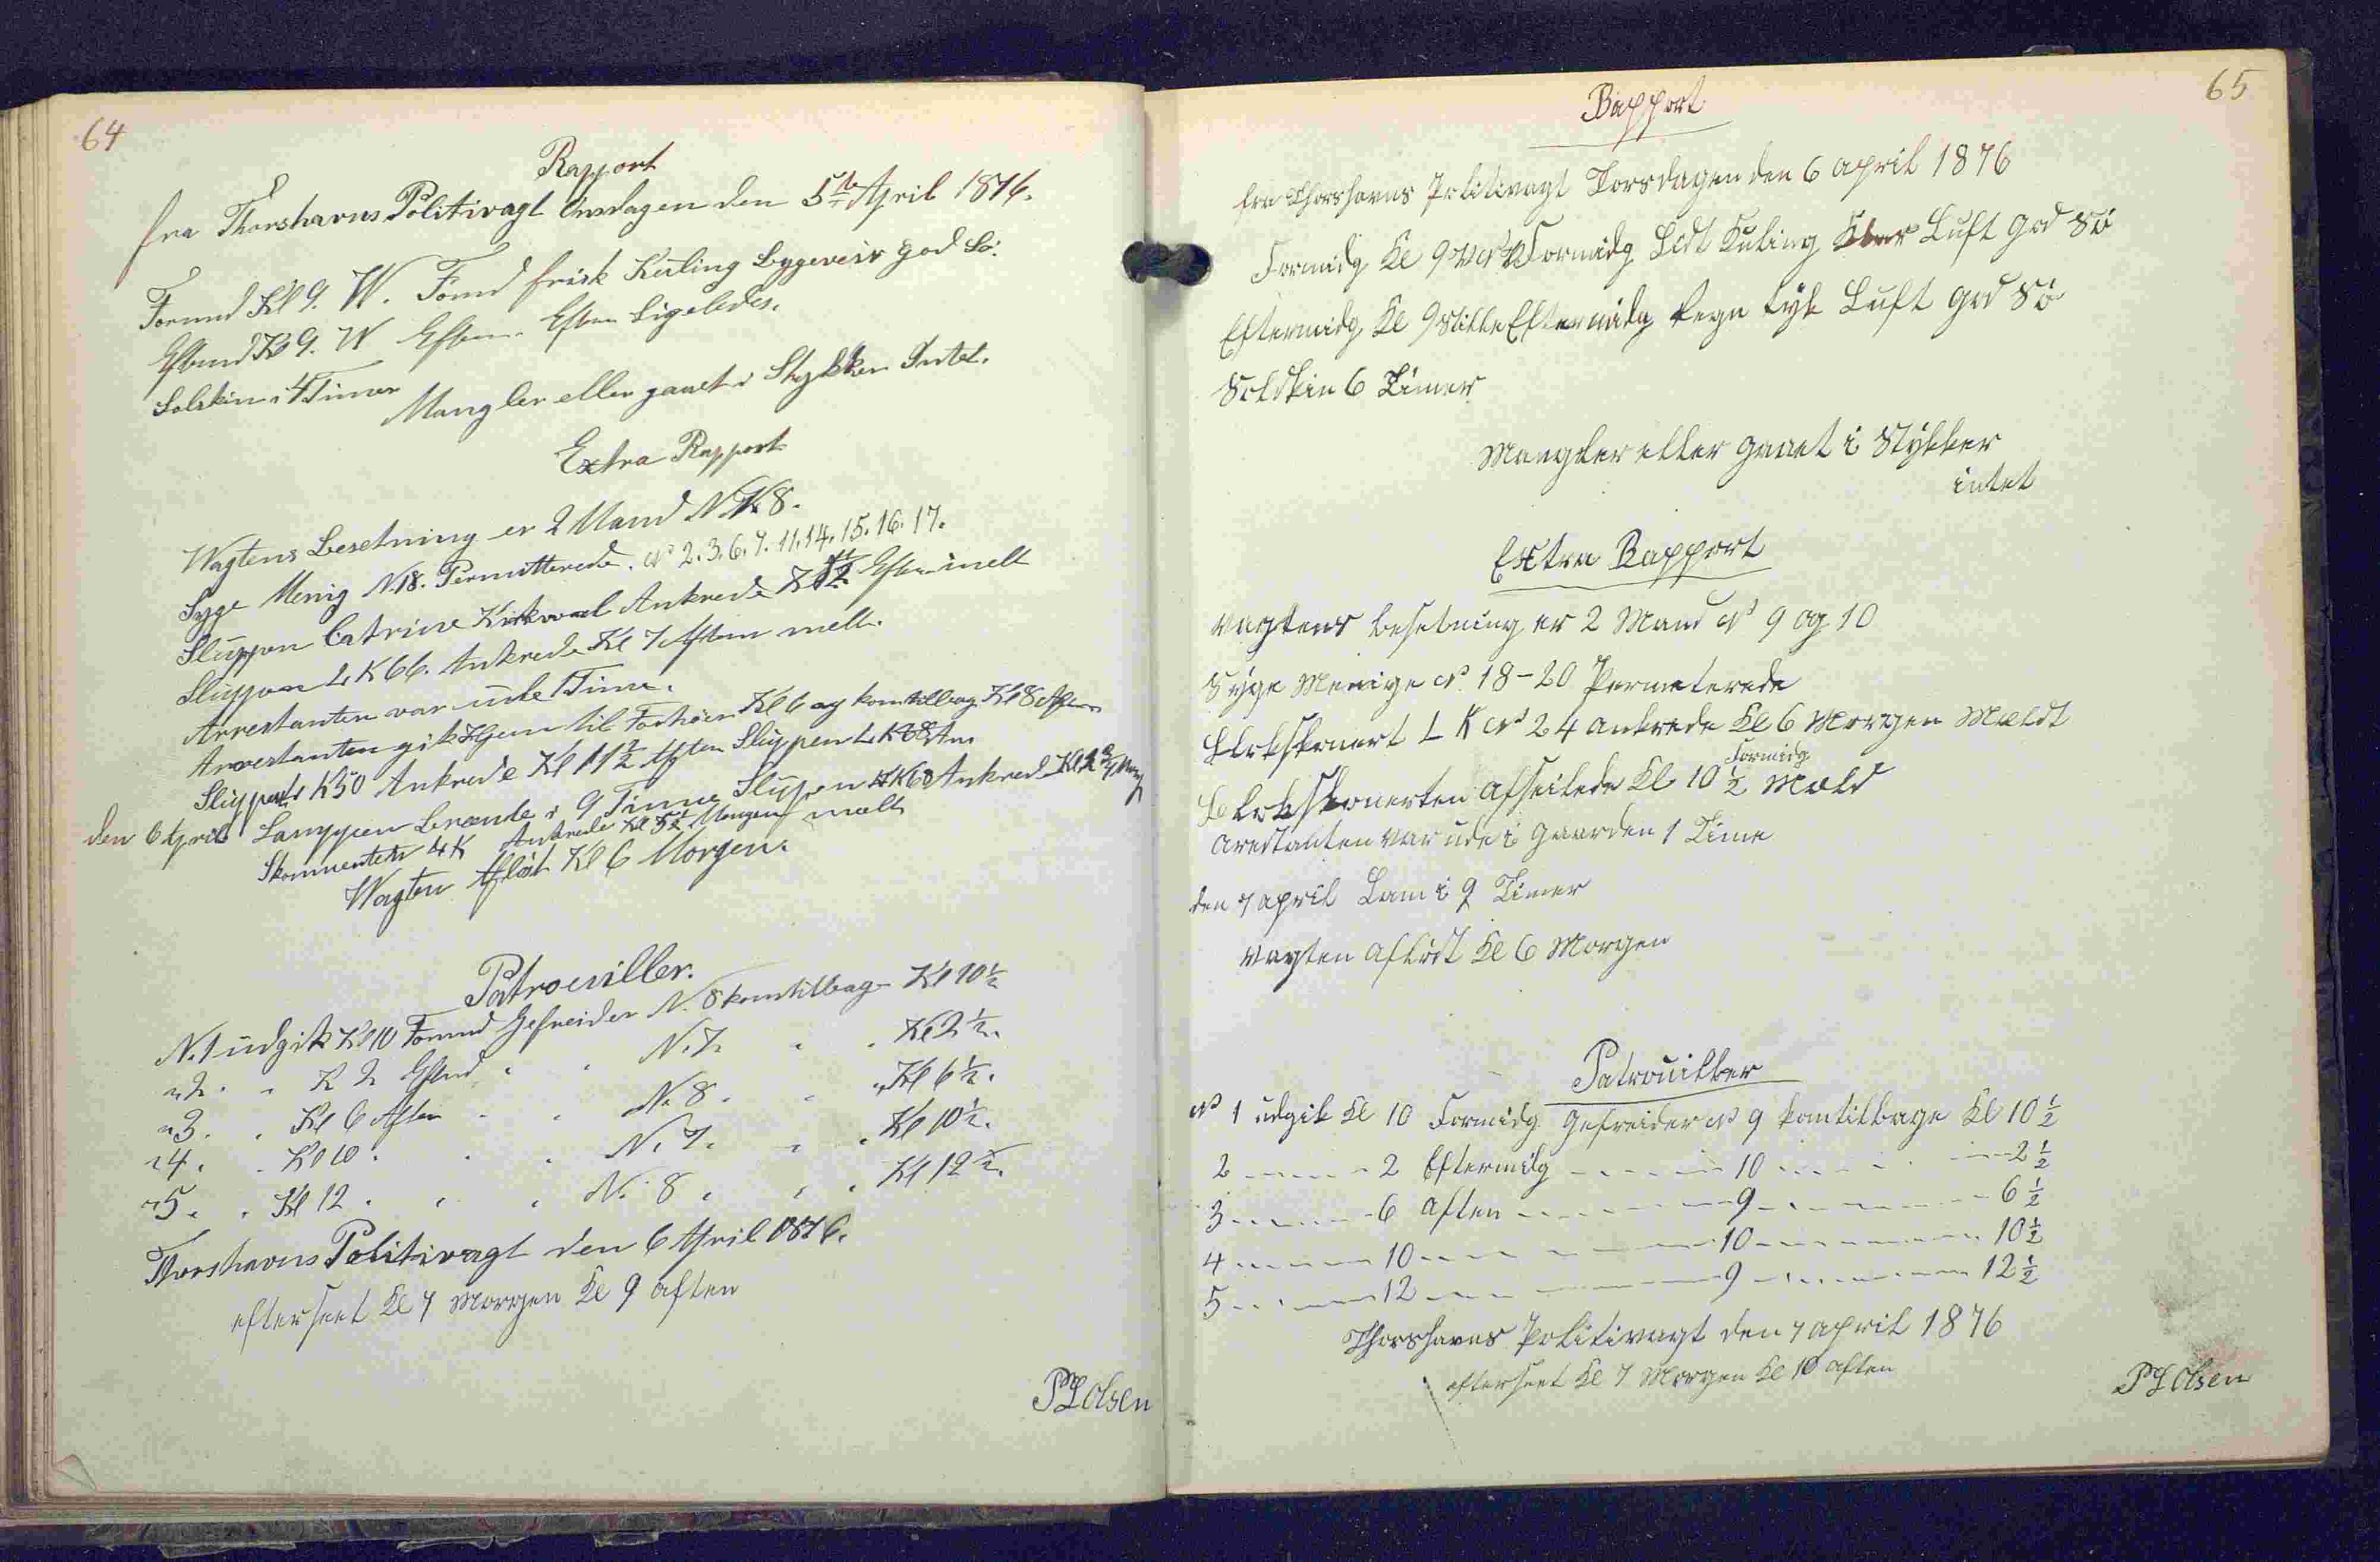 64
Rapport
fra Thorshavns Politivagt Onsdagen den 5te April 1876.
Formd Kl 9. W. Fomd frisk Kuling Bygeveir god Sö.
Eftmd Kl 9. W Eftm. Eftm Ligeledes.
Solskin i 4 Timer
Mangler eller gaaet i Stykker Intet.
Extra Rapport
Wagtens Besetning er 2 Mand N. 7 & 8.
Syge Menig N. 18. Permitterede. No 2. 3. 6. 7. 11. 14. 15. 16. 17.
Sluppen Catrine Kirkwall Ankrede Kl Eftm melt
Sluppen L K 66. Ankrede Kl 7 Aften melt.
Arrestanten var ude 1 Time.
Arrestanten gik Hjem til Forhöer Kl 6 og kom tilbag Kl 8 Aften
Sluppen L K 50 Ankrede Kl 11 1/2 Aften Sluppen L K 88 An
den 6 April Lamppen brænde i 9 Timer Sluppen L K 68 Ankrede Kl
Skonnerten L K Ankrede Kl 5 1/2 Morgen melt
Wagten Aflöst Kl 6 Morgen.
Patrouiller.
N. 1 udgik Kl 10 Formd Gefreider N. 8 kom tilbage Kl 10 1/2
" 2 " " Kl 2 Eftmd " " N. 7. " " Kl 2 1/2.
" 3. " Kl 6 Aften " " N. 8. " " Kl 6 1/2.
" 4. " Kl 10. " " N. 7. " " Kl 10 1/2.
" 5. " Kl 12. " " N. 8. " " Kl 12 1/2.
Thorshavns Politivagt den 6 April 1876.
efterseet Kl 7 Morgen Kl 9 aften
P L Olsen
65
Rapport
fra Thorshavns Politivagt Torsdagen den 6 april 1876
Formidg Kl 9 Formidg Lidt Kuling Klar Luft god Sö
Eftermidg Kl 9 Stille Eftermidg Regn tyk Luft god Sö
Solskin 6 Timer
Mangler eller gaaet i Stykker
intet
Extra Rapport
Vagtens besetning er 2 Mand No 9 og 10
Syge Menige No 18-20 Permeterede
Slobskonert L K No 24 ankrede Kl 6 Morgen Meldt
Formidg
Slobskonerten afseilede Kl 10 1/2 Meld
arestanten var ude i gaarden 1 Time
den 7 april Lam i 9 Timer
Vagten aflöst Kl 6 Morgen
Patrouiller
No 1 udgik Kl 10 Formidg gefreider No 9 komtilbage Kl 10 1/2
2 - - - - 2 Eftermidg - - - - 10 - - - - 2 1/2
3 - - - - 6 aften - - - - 9 - - - - 6 1/2
4 - - - - 10 - - - - 10 - - - - 10 1/2
5 - - - - 12 - - - - 9 - - - - 12 1/2
Thorshavns Politivagt den 7 april 1876
efterseet Kl 7 Morgen Kl 10 aften
P L Olsen